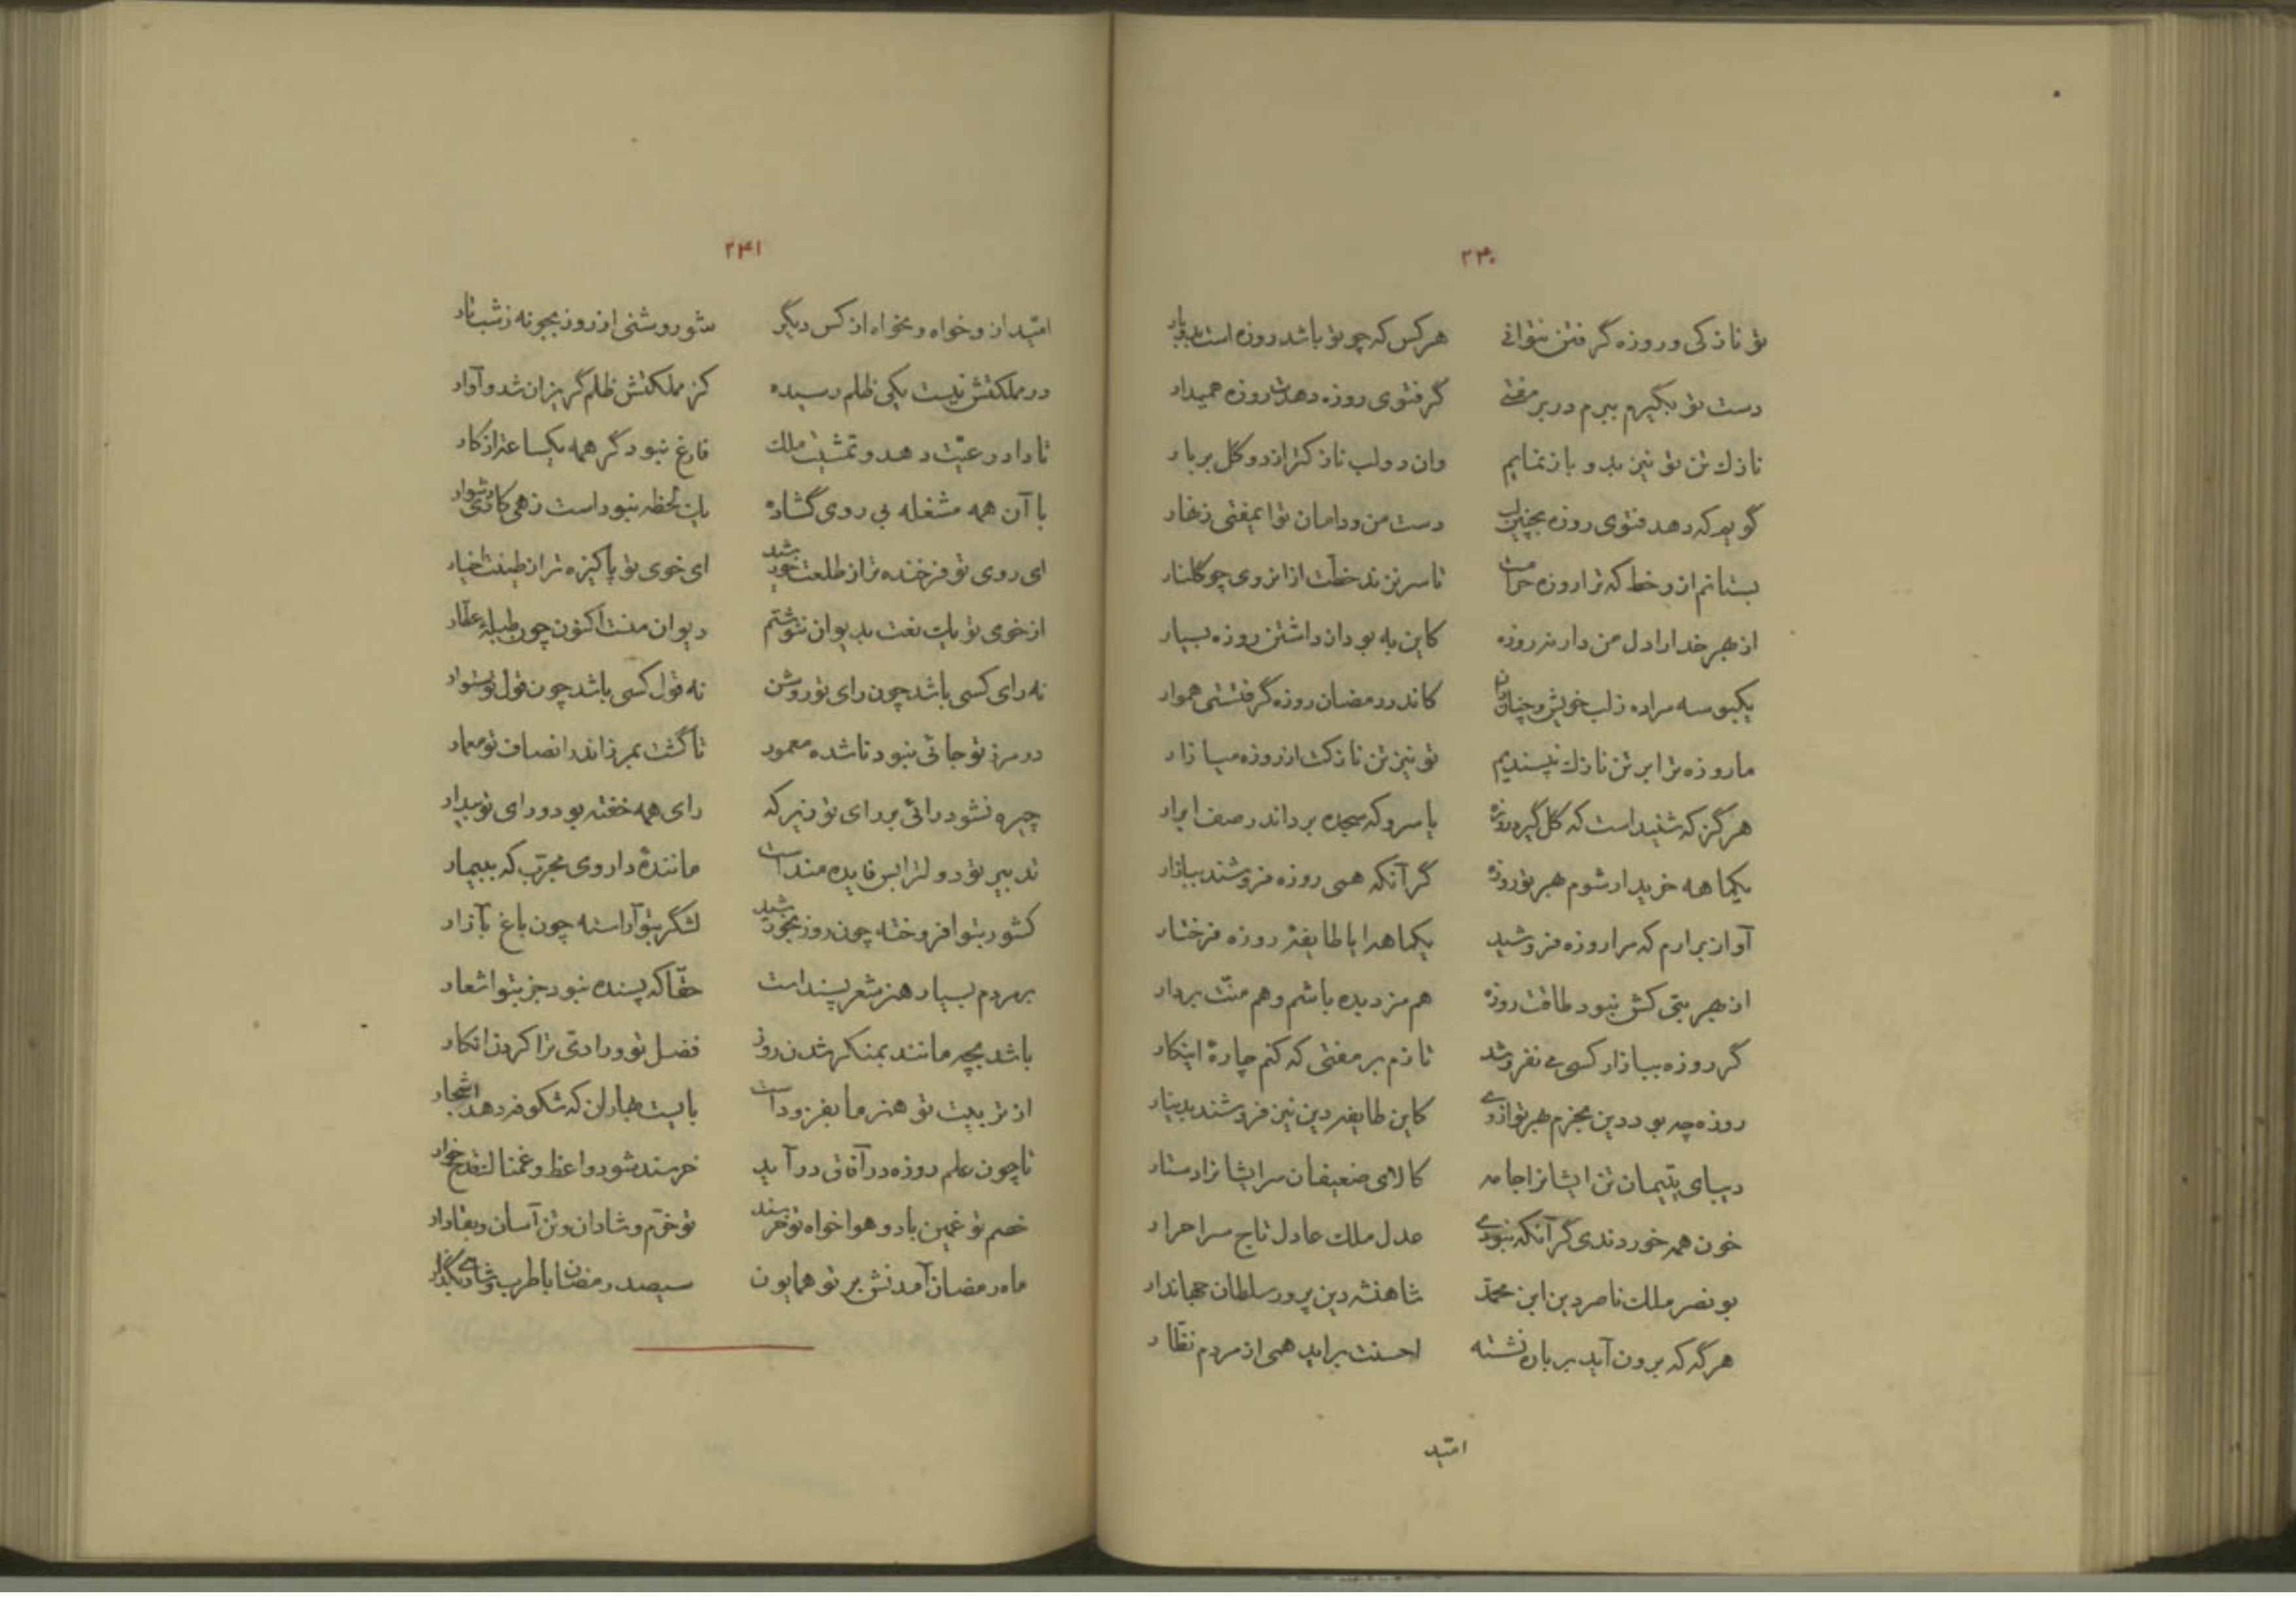 ۲۴۰
تو نازکی و روزه گرفتن نتوانی هر کس که چو تو باشد روزه است بدو بار
دست تو بگیرم ببرم در بر مفتی گر فتوی روزه دهدت روزه همیدار
نازک تن تو نیز بدو باز نمایم وان دو لب نازکتر از دو گل بر بار
گویم که دهد فتوی روزه بچنین لب دست من و دامان تو ای مفتی زنهار
بستانم ازو خط که ترا روزه حرامست تا سر نزند خطت ازانروی چو گلنار
از بهر خدا را دل من دار نه روزه کاین به بود از داشتن روزه بسیار
یکبوسه مرا ده ز لب خویش و چنان دان کاندر رمضان روزه گرفتستی هموار
ما روزه ترا بر تن نازک نپسندیم تو نیز تن نازکت از روزه میازار
هرگز که شنیداست که گل گیرد روزه یا سرو که سجده برد اندر صف ابرار
یکماهه خریدار شوم بهر تو روزه گر آنکه همی روزه فروشند ببازار
آواز برارم که مرا روزه فروشید یکماهه ایا طایفهٔ روزه فرختار
از بهر بتی کش نبود طاقت روزه هم مزد دیده باشم و هم منّت بردار
گر روزه ببازار کسی می نفروشد تازم بر مفتی که کنم چارهٔ اینکار
روزه چه بود دین بخرم بهر تو از وی کاین طایفه دین نیز فروشند بدینار
دیبای یتیمان تن ایشانرا جامه کالای ضعیفان سر ایشانرا دستار
خون همه خوردندی گر آنکه نبودی عدل ملک عادل تاج سر احرار
بونصر ملک ناصر دین ابن محمّد شاهنشه دین پرور سلطان جهاندار
هر گه که برون آید بر باره نشسته احسنت براید همی از مردم نظّار
امّید
۲۴۱
امّید ازو خواه و مخواه از کس دیگر شو روشنی از روز بجو نه ز شب تار
در مملکتش نیست یکی ظلم رسیده کز مملکتش ظلم گریزان شد و آوار
تا داد رعیّت دهد و تمشیت ملک فارغ نبود گر همه یکساعت از کار
با آن همه مشغله بی روی گشاده یک لحظه نبوداست زهی کار دشوار
ای روی تو فرخنده تر از طلعت خورشید ای خوی تو پاکیزه تر از طینت اخیار
از خوی تو یک نعت بدیوان ننوشتم دیوان منست اکنون چون طبلهٔ عطّار
نه رای کسی باشد چون رای تو روشن نه قول کسی باشد چون قول تو ستوار
در مرز تو جائی نبود ناشده معمور تا گشت بمرز اندر انصاف تو معمار
چیره نشود رائی بر رای تو زیرکه رای همه خفته بود و رای تو بیدار
تدبیر تو دولت را بس فایده منداست مانندهٔ داروی مجرّب که ببیمار
کشور بتو افروخته چون روز بخورشید لشگر بتو آراسته چون باغ بآزار
بر مردم بسیار هنر شعر پسنداست حقّا که پسنده نبود جز بتو اشعار
باشد بچه مانند بمنکر شدن روز فضل تو و رادی ترا کردن انکار
از تربیت تو هنر ما بفزوداست بایست بهاران که شکوفه دهد اشجار
تا چون علم روزه در آفاق در آید خرسند شود واعظ و غمناک قدح خوار
خصم تو غمین باد و هواخواه تو خرسند تو خرّم و شادان و تن آسان و بقادار
ماه رمضان آمدنش بر تو همایون سیصد رمضان با طرب و شادی بگذار